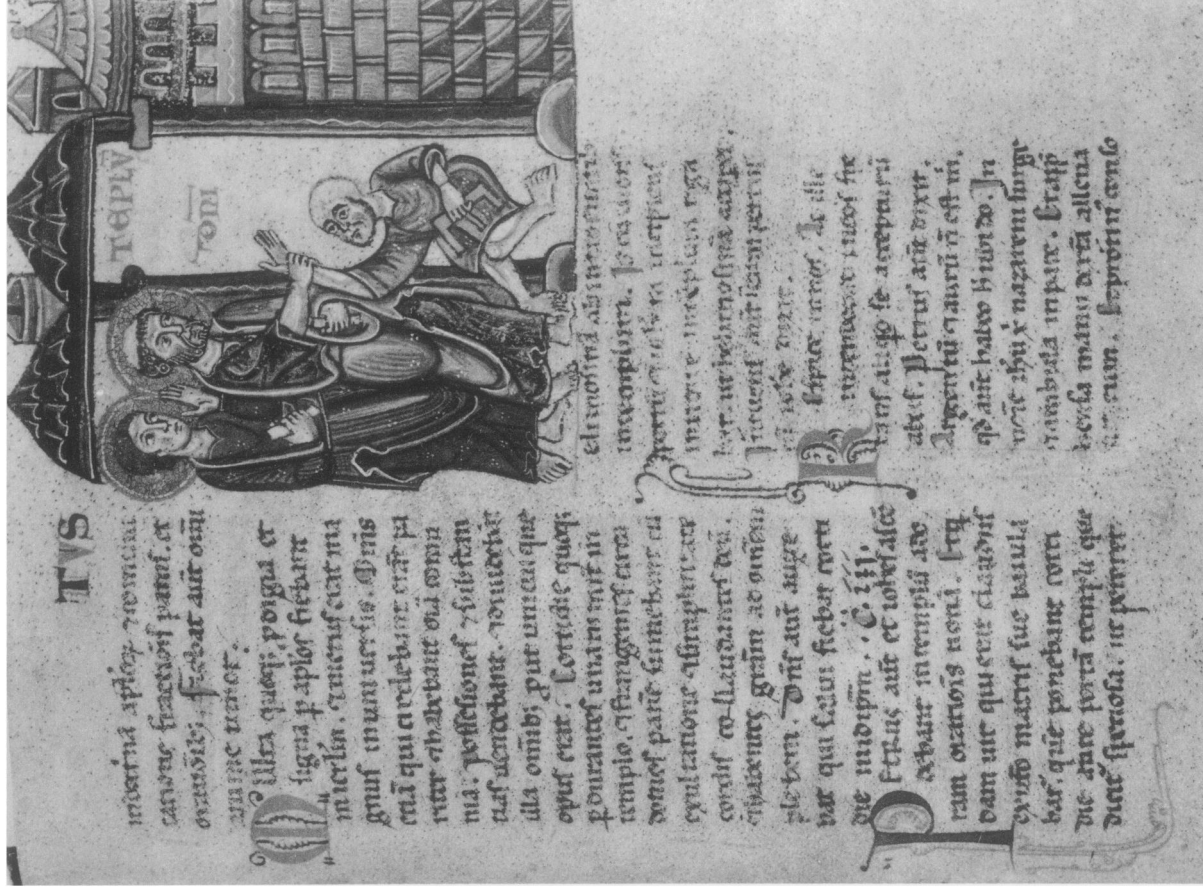 TVS
TEPLV̄
DOMI
indoctrina aploꝝ ⁊comuni
catione fractiõis panis. et
orationib;. Fiebat aut̄ omī
anime timor.
Multa quoq; ꝓdigia et
signa ꝑ apl̄os fiebant
in ierl̄m. ⁊metus erat ma
gnus in uniuersis. Om̄s
etiā qui credebant erāt pa
riter ⁊habebant oīa comu
nia; possessiones ⁊substan
tias uendebant. ⁊diuidebāt
illa omib; put unicuiq;
opus erat. Cottidie quoq;
ꝑdurantes unanimit̄ in
templo. ⁊frangentes circa
domos panē sumebant cū
exultatione ⁊simplicitate
cordis collaudantes dm̄.
⁊habentes gr̄am ad omē
plebem. Dn̄s aut̄ auge
bat qui salui fiebāt coti
die inidip̄m. C̄ III.
Petrus aut̄ et ioh̄s ascē
debant intemplū ad ho
ram orat̄ois nonā. Et q̄
dam uir qui erat claudus
ex utō matris sue baiula
bat̄. quē ponebant coti
die ante portā templi que
dicit̄ speciosa. ut peteret
elimosinā abintroeuntib;
intemplum. Is cū uidiss&
petrū ⁊ioh̄em incipientes
introire intēplum roga
bat ut helimosinā acciper&.
Intuens aut̄ ineum petrus
cū ioh̄e dixit.
Respice innos. At ille
intendebat ineos spe
rans aliqd̄ se accepturū
ab eis. Petrus aut̄ dixit.
Argentū ⁊aurū n̄ est m̄.
qd̄ aut̄ habeo h̄ tibi do. In
noīe ih̄u xp̄i nazareni surge
⁊ambula inpace. Et app̄
hensa manu dext̄a alleua